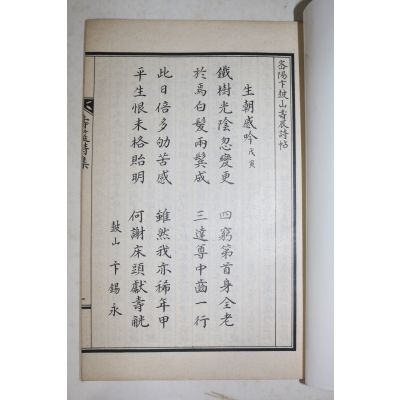 密陽卞鼓山壽辰詩帖
生朝感吟 戊寅
鐵樹光陰忽變更 四窮第首身全老
於焉白髮兩鬓成 三達尊中齒一行
此日倍多劬苦感 雖然我亦稀年甲
平生恨未格貽明 何謝床頭獻壽觥
鼓山 卞錫永
壽筵詩集